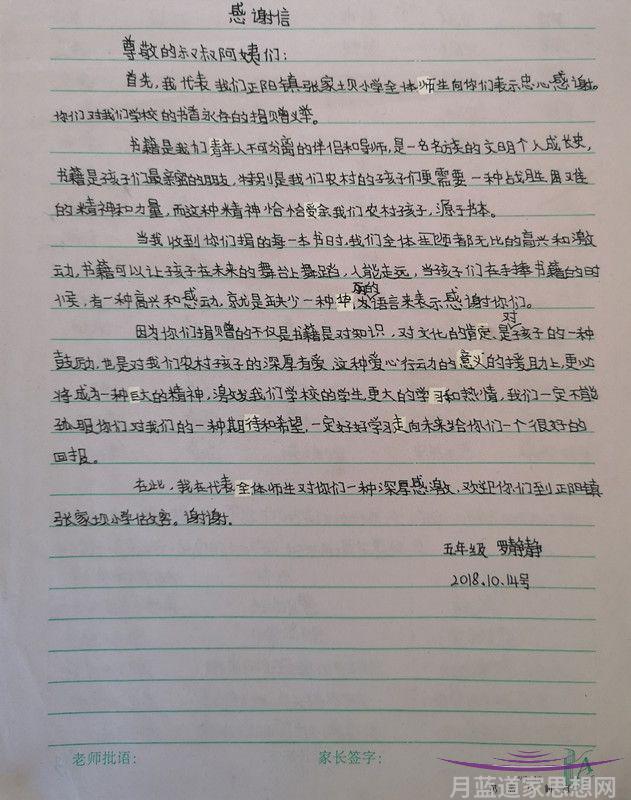 感谢信
尊敬的叔叔阿姨们:
首先,我代表我们正阳镇张家坝小学全体师生向你们表示忠心感谢。
你们对我们学校的书香永存的捐赠义举。
书籍是我们青年人不可分离的伴侣和导师,是一名名族的文明个人成长史,
书籍是孩子们最亲密的朋友,特别是我们农村的孩子们更需要一种战胜困难
的精神和力量,而这种精神恰恰受余我们农村孩子,源于书本。
当我收到你们捐的每一本书时,我们全体师都无比的高兴和激
动,书籍可以让孩子在未来的舞台上舞蹈,人能走远,当孩子们在手捧书籍的时
候,有一种高兴和感动,就是缺少一种华丽的语言来表示感谢你们。
因为你们捐赠的不仅是书籍是对知识,对文化的肯定,是对孩子的一种
鼓励,也是对我们农村孩子的深厚有爱,这种爱心行动的意义的援助上,更必
将成为一种巨大的精神,激发我们学校的学生更大的学习和热情,我们一定不能
的你们对我们的一种期待和希望,一定好好学习走向未来给你们一个很好的
回报。
在此,我在代表全体师生对你们一种深厚感激,欢迎你们到正阳镇
张家坝小学做客。谢谢。
五年级 罗静静
2018.10.14号
老师批语: 家长签字:
月蓝道家思想网